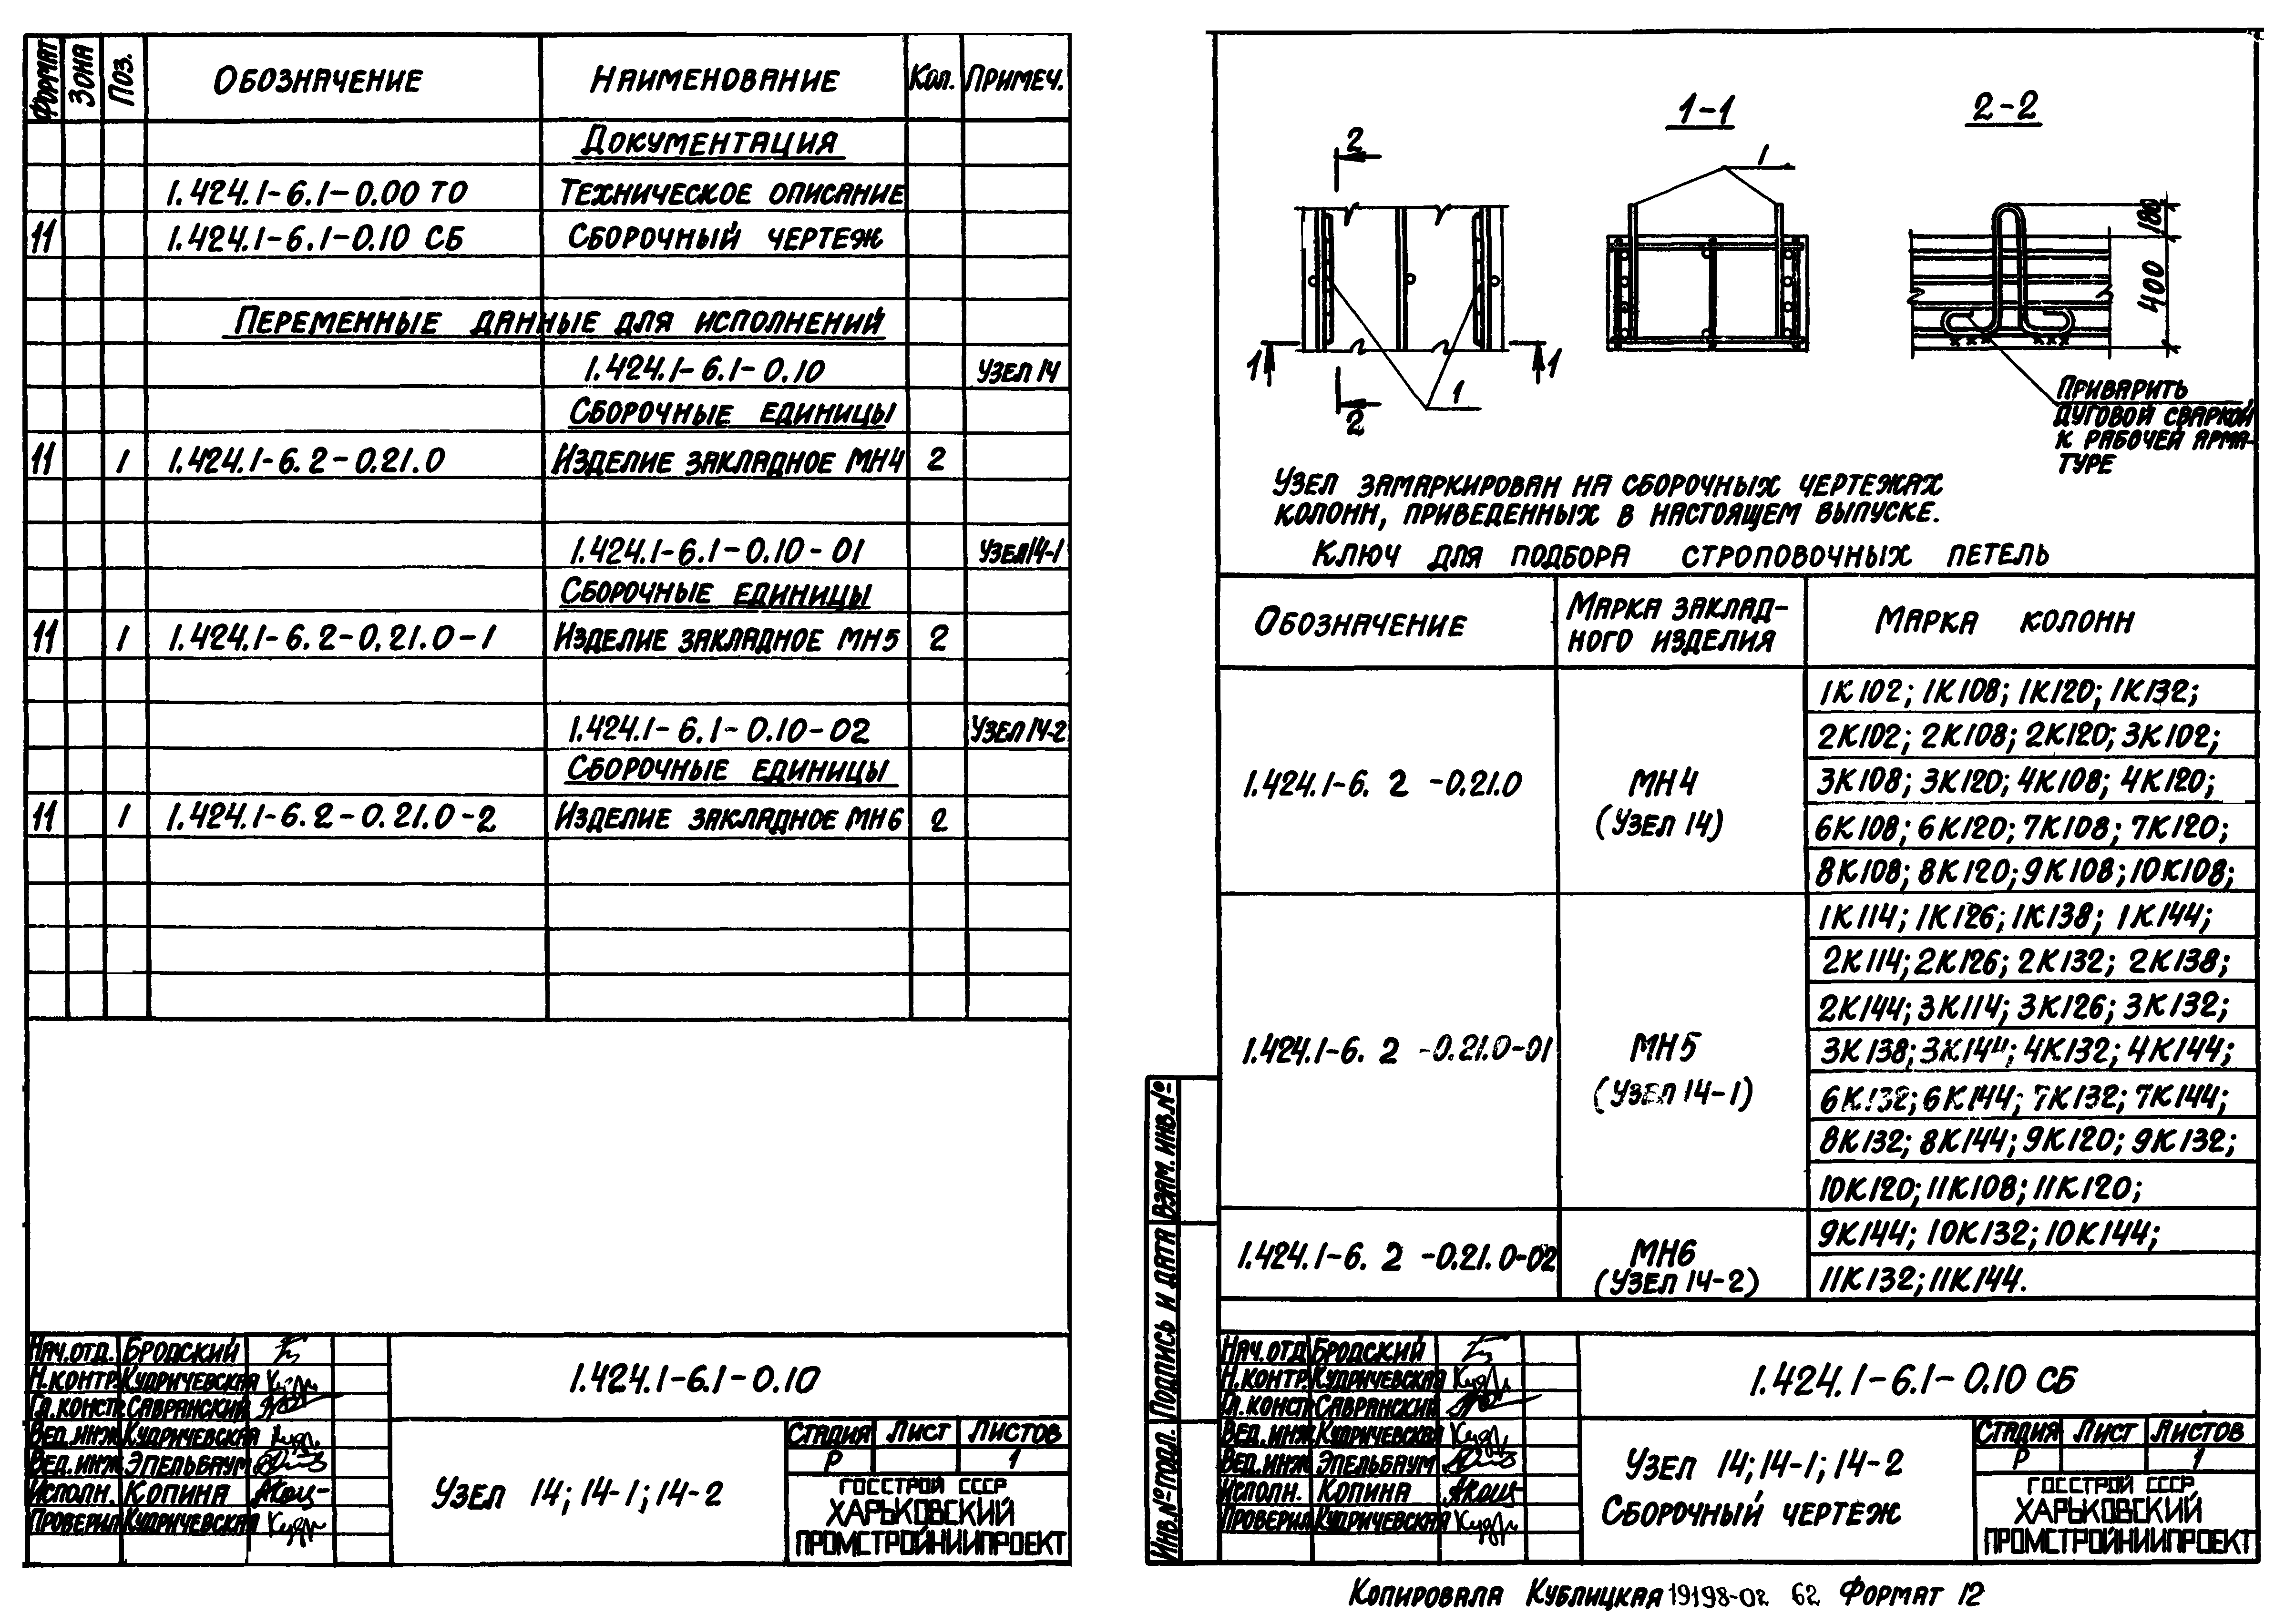 Формат Зона Поз. Обозначение Наименование Кол. Примеч.
Документация
1.424.1-6.1-0.00 ТО Техническое описание
11 1.424.1-6.1-0.10 СБ Сборочный чертеж
Переменные данные для исполнений
1.424.1-6.1-0.10 Узел 14
Сборочные единицы
11 1 1.424.1-6.2-0.21.0 Изделие закладное МН4 2
1.424.1-6.1-0.10-01 Узел 14-1
Сборочные единицы
11 1 1.424.1-6.2-0.21.0-1 Изделие закладное МН5 2
1.424.1-6.1-0.10-02 Узел 14-2
Сборочные единицы
11 1 1.424.1-6.2-0.21.0-2 Изделие закладное МН6 2
Нач.отд. Бродский
Н.контр. Кудричевская
Гл.констр. Савранский
Вед.инж. Кудричевская
Вед.инж. Эпельбаум
Исполн. Копина
Проверил Кудричевская
1.424.1-6.1-0.10
Узел 14; 14-1; 14-2
Стадия Лист Листов
Р 1
ГОССТРОЙ СССР
ХАРЬКОВСКИЙ
ПРОМСТРОЙНИИПРОЕКТ
1-1
2-2
2
1
1
1
1
2
180
400
Приварить
дуговой сваркой
к рабочей арма-
туре
Узел замаркирован на сборочных чертежах
колонн, приведенных в настоящем выпуске.
Ключ для подбора строповочных петель
Обозначение Марка заклад-
ного изделия Марка колонн
1.424.1-6. 2 -0.21.0 МН4
(Узел 14)
1К102; 1К108; 1К120; 1К132;
2К102; 2К108; 2К120; 3К102;
3К108; 3К120; 4К108; 4К120;
6К108; 6К120; 7К108; 7К120;
8К108; 8К120; 9К108; 10К108;
1.424.1-6. 2 -0.21.0-01 МН5
(Узел 14-1)
1К114; 1К126; 1К138; 1К144;
2К114; 2К126; 2К132; 2К138;
2К144; 3К114; 3К126; 3К132;
3К138; 3К144; 4К132; 4К144;
6К132; 6К144; 7К132; 7К144;
8К132; 8К144; 9К120; 9К132;
10К120; 11К108; 11К120;
1.424.1-6. 2 -0.21.0-02 МН6
(Узел 14-2)
9К144; 10К132; 10К144;
11К132; 11К144.
Инв.№ подл. Подпись и дата Взам.инв.№
Нач.отд Бродский
Н.контр. Кудричевская
Гл.констр Савранский
Вед.инж. Кудричевская
Вед.инж Эпельбаум
Исполн. Копина
Проверил Кудричевская
1.424.1-6.1-0.10 СБ
Узел 14; 14-1; 14-2
Сборочный чертеж
Стадия Лист Листов
Р 1
ГОССТРОЙ СССР
ХАРЬКОВСКИЙ
ПРОМСТРОЙНИИПРОЕКТ
Копировала Кублицкая 19198-02 62 Формат 12